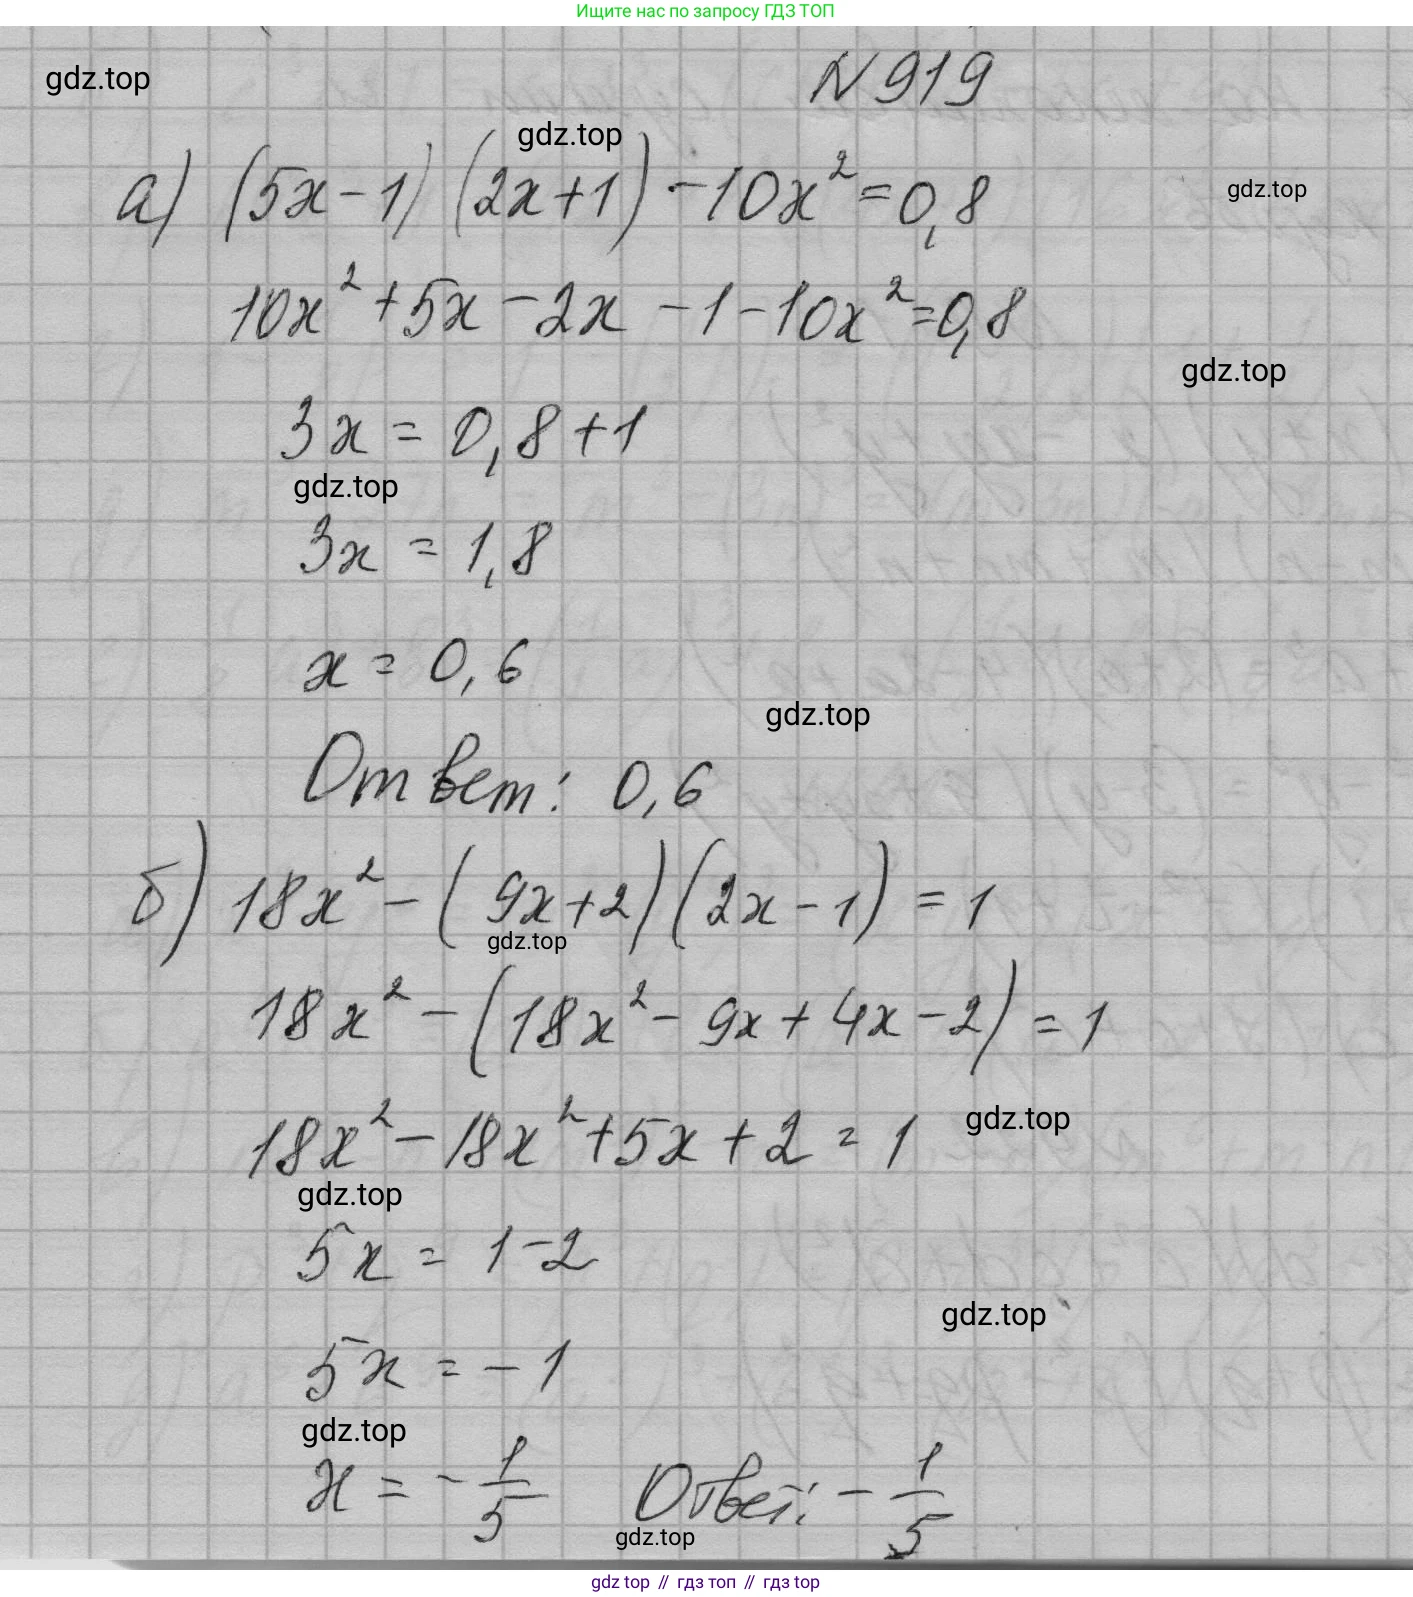 Ищите нас по запросу ГДЗ ТОП
N 919
gdz.top
gdz.top
а) (5x-1)(2x+1)-10x²=0,8
gdz.top
10x²+5x-2x-1-10x²=0,8
gdz.top
3x=0,8+1
gdz.top
3x=1,8
x=0,6
gdz.top
Ответ: 0,6
б) 18x²-(9x+2)(2x-1)=1
gdz.top
18x²-(18x²-9x+4x-2)=1
18x²-18x²+5x+2=1
gdz.top
gdz.top
5x=1-2
gdz.top
5x=-1
gdz.top
x=-1/5 Ответ: -1/5
gdz.top
gdz top // гдз топ // гдз top